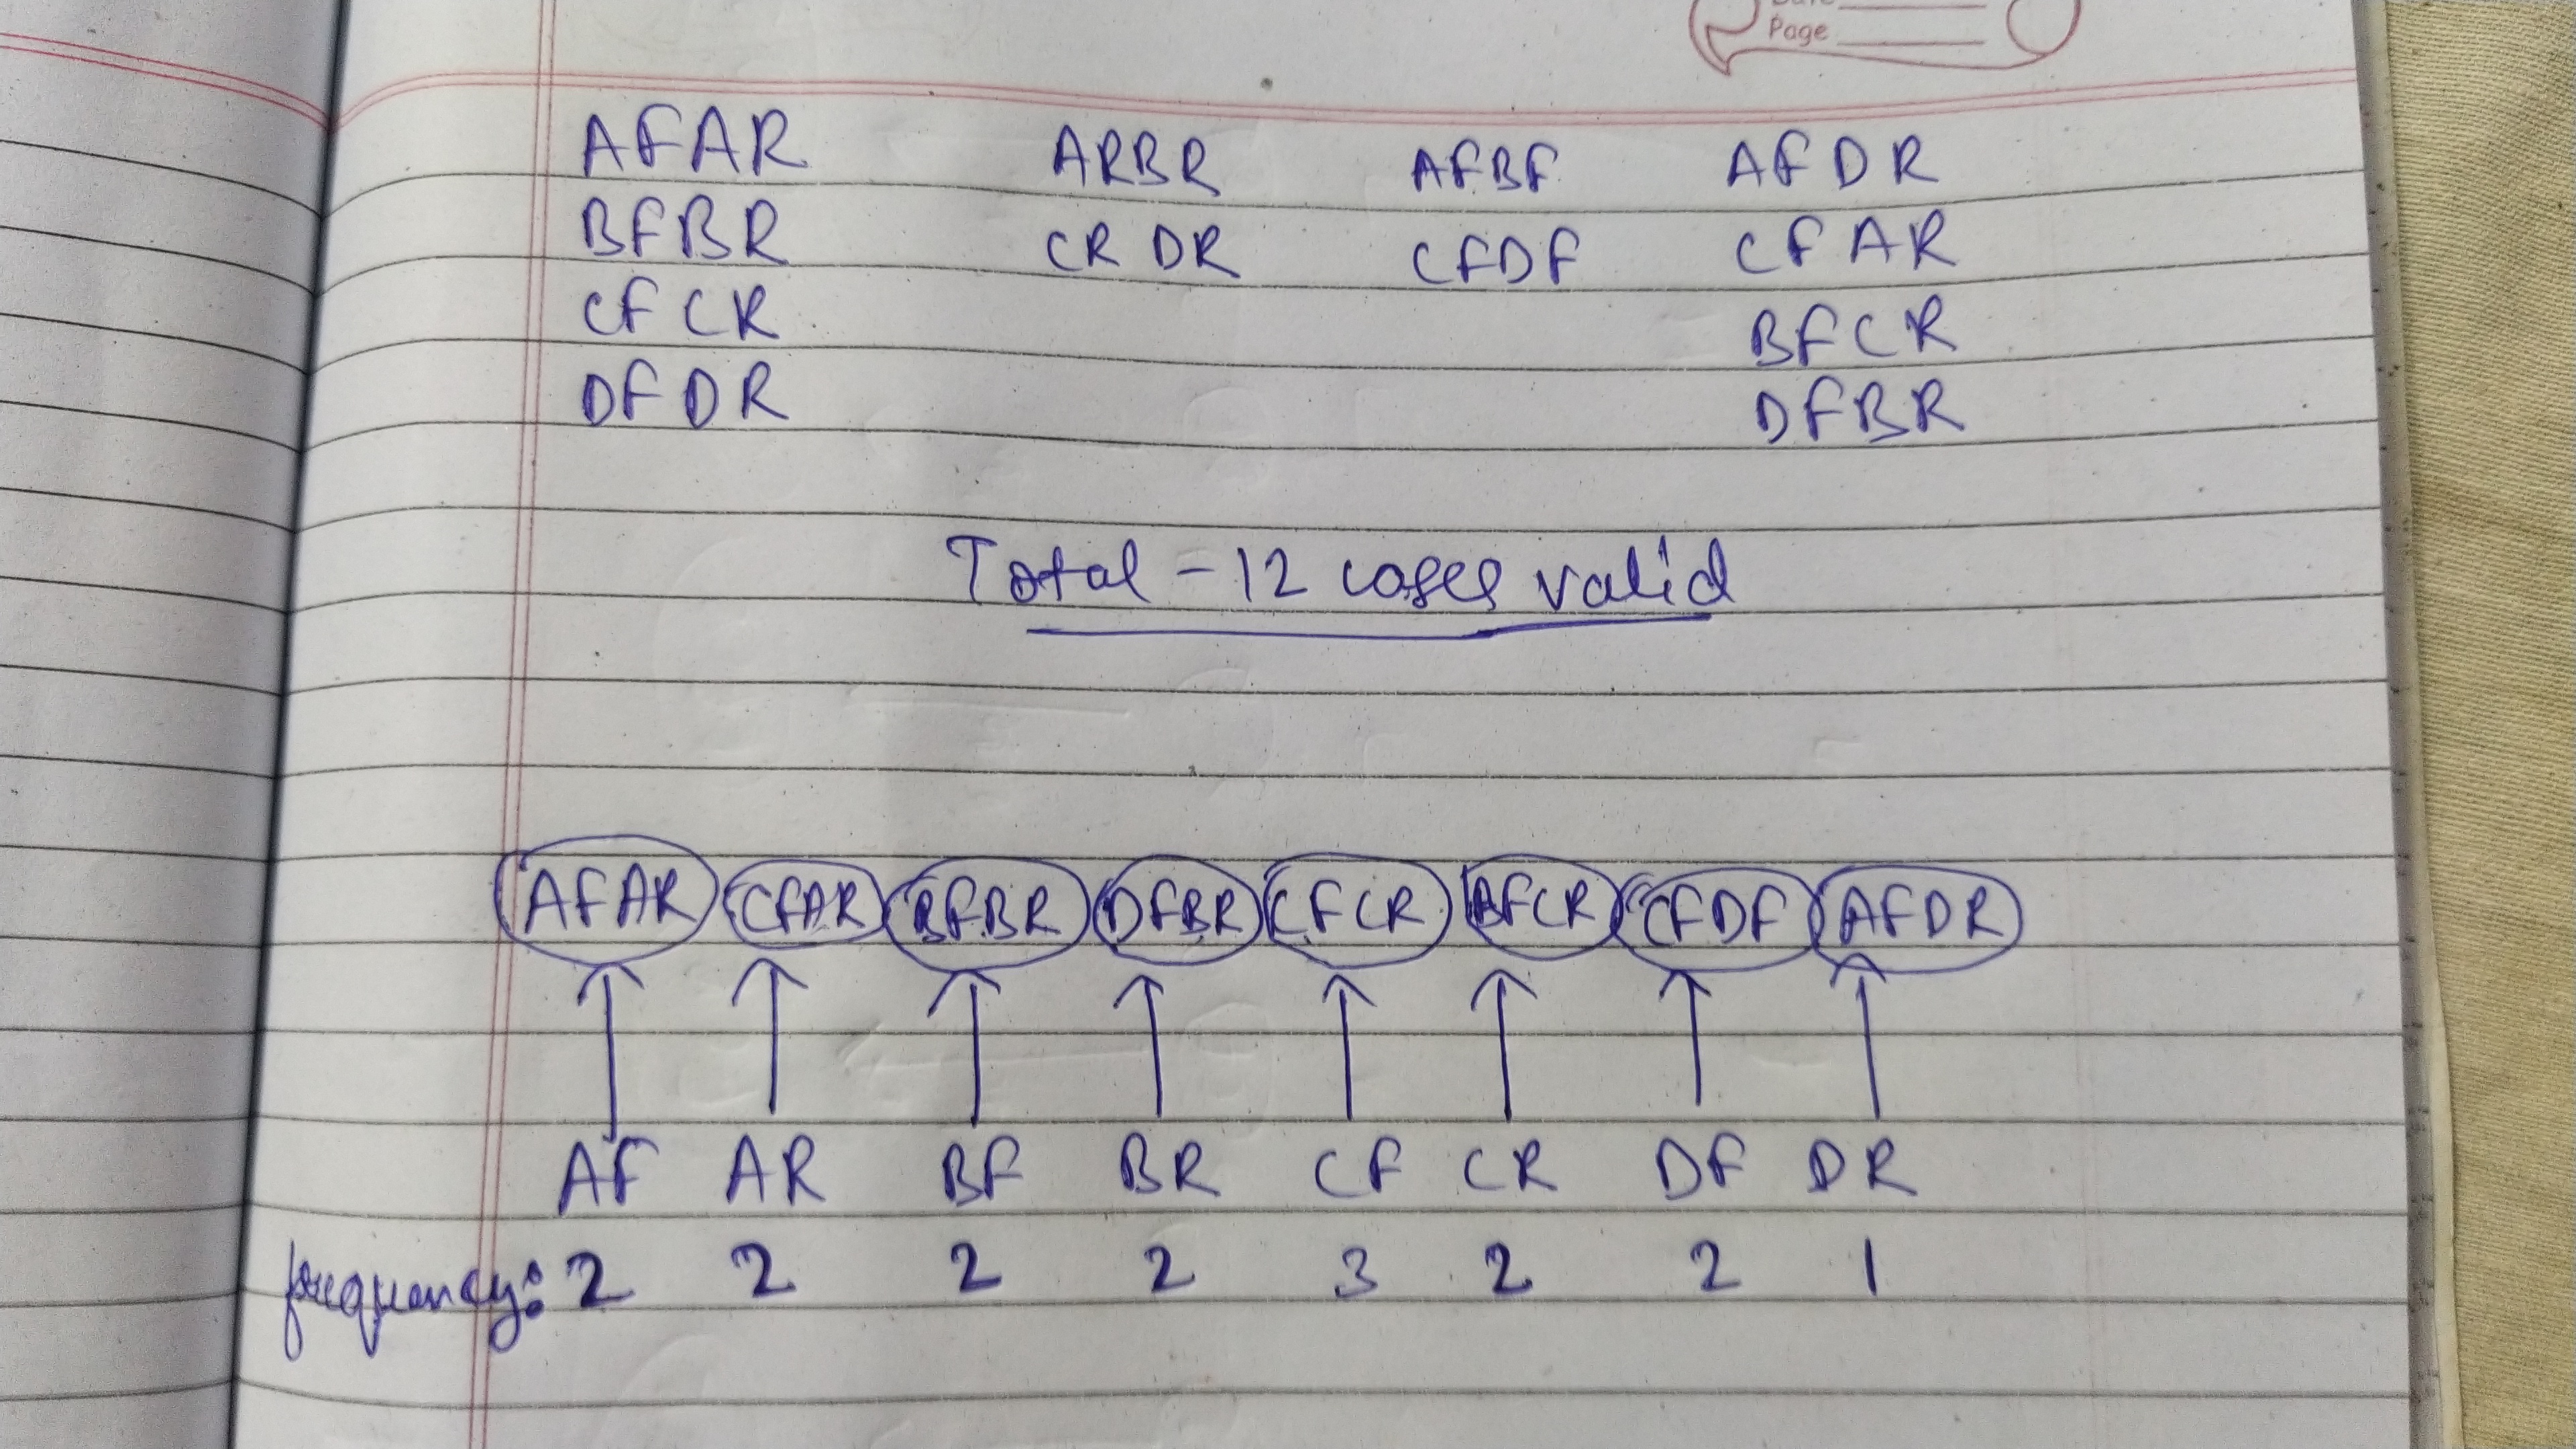 Page
AFAR ARBR AFBF AFDR
BFBR CRDR CFDF CFAR
CFCR BFCR
DFDR DFBR
Total - 12 cases valid
AFAR CFAR BFBR DFBR CFCR BFCR CFDF AFDR
AF AR BF BR CF CR DF DR
frequency: 2 2 2 2 3 2 2 1